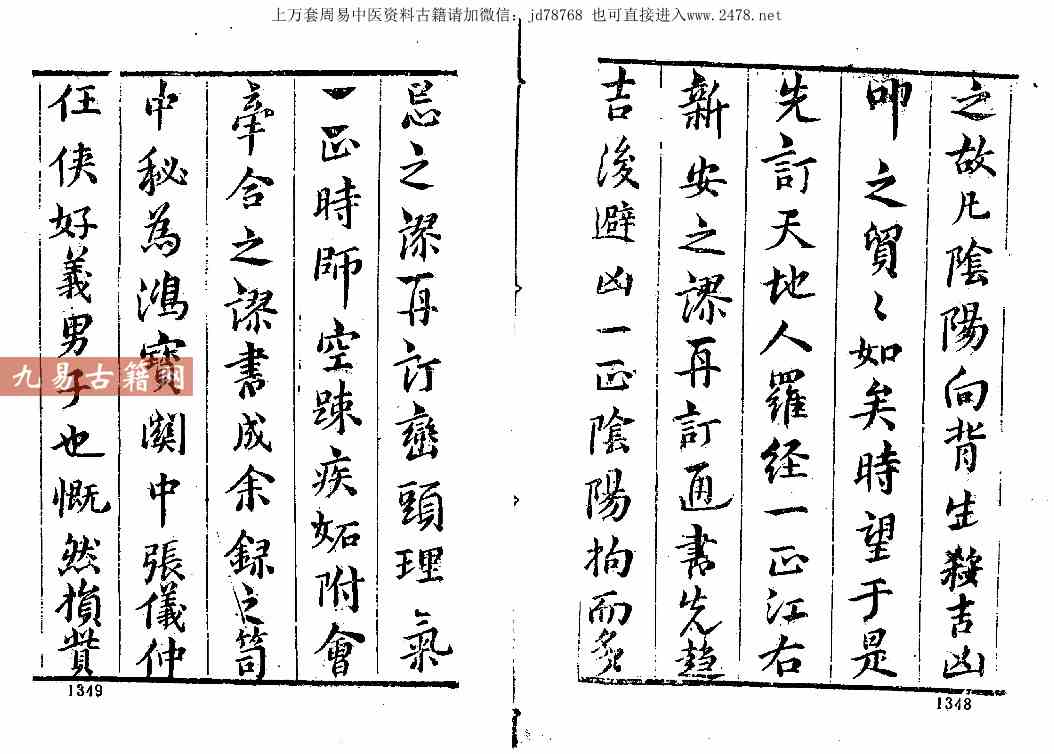 上万套周易中医资料古籍请加微信：jd78768 也可直接进入www.2478.net
之故凡陰陽向背生殺吉凶
叩之貿〻如矣時望于是
先訂天地人羅经一正江右
新安之謬再訂通書先趋
吉後避凶一正陰陽拘而多
1348
忌之謬再訂巒頭理氣
一正時師空踈疾妬附會
牽合之謬書成余録之笥
中秘為鴻寳闗中張儀仲
任侠好義男子也慨然損貲
1349
九易古籍网